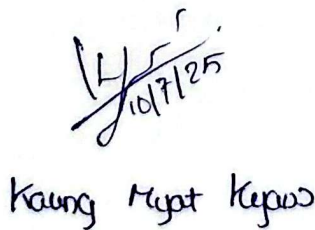 10/7/25
Kaung Myat Kyaw